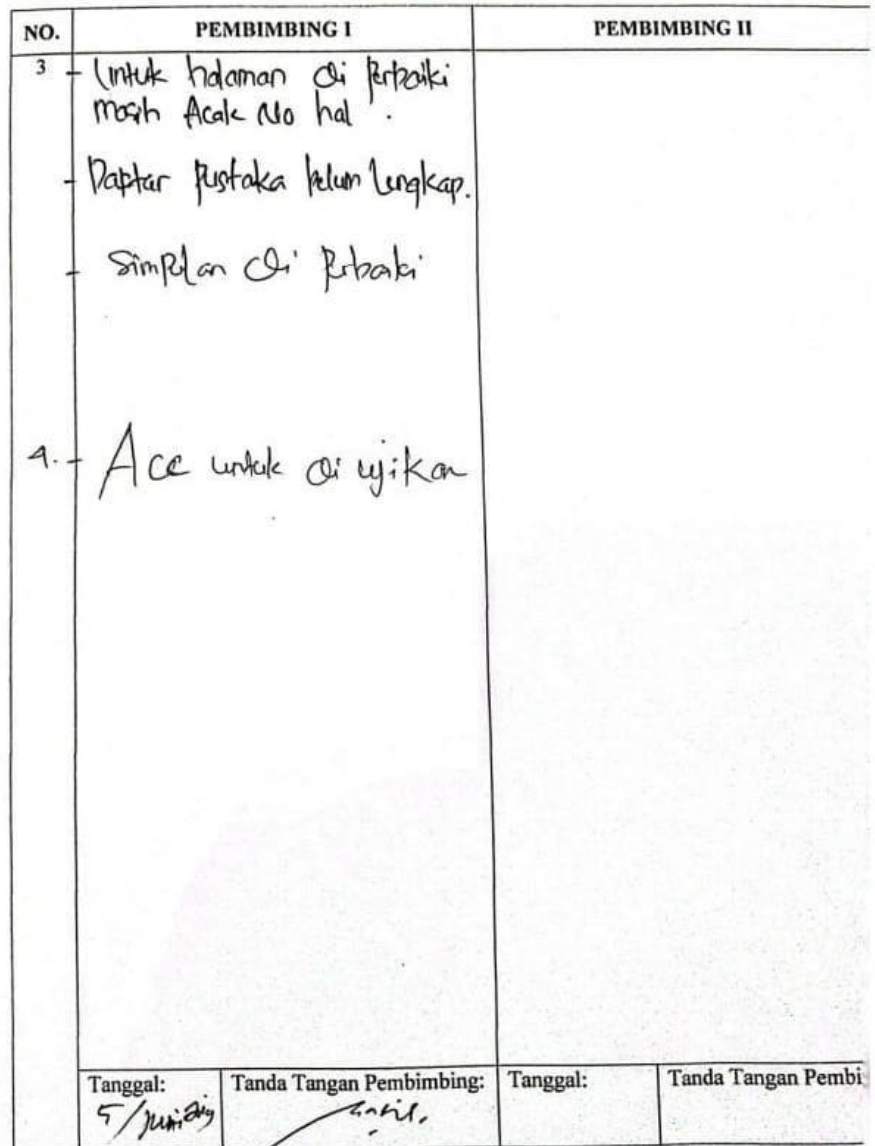 NO. PEMBIMBING I PEMBIMBING II
3 - Untuk halaman di Perbaiki
masih Acak No hal.
- Daptar Pustaka belum lengkap.
- Simpulan di Perbaiki
4. - Acc untuk di ujikan
Tanggal: Tanda Tangan Pembimbing: Tanggal: Tanda Tangan Pembi
5/Juni